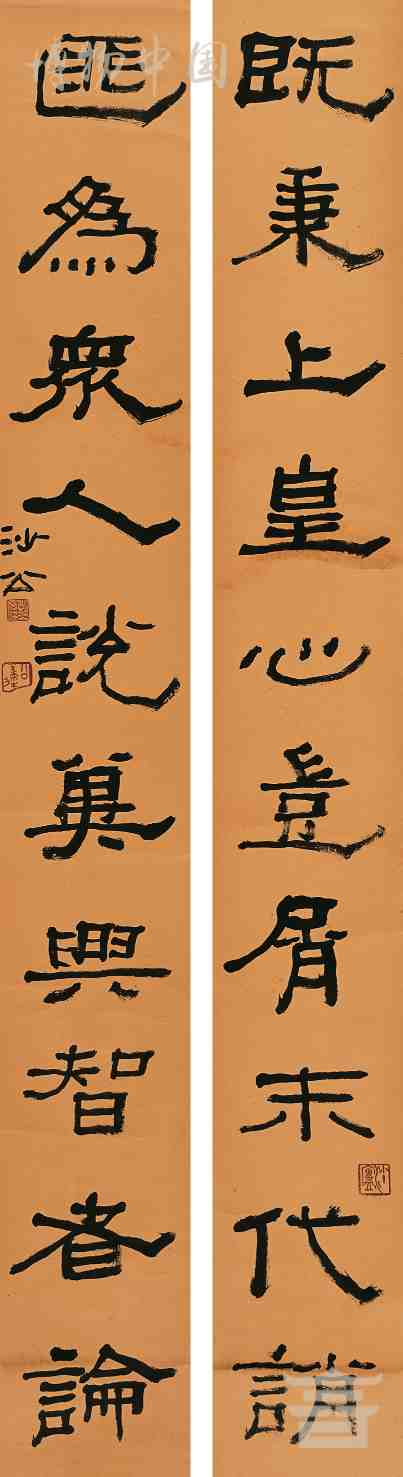 既秉上皇心豈屑末代誚
匪為眾人說冀與智者論
沙公
博物中国